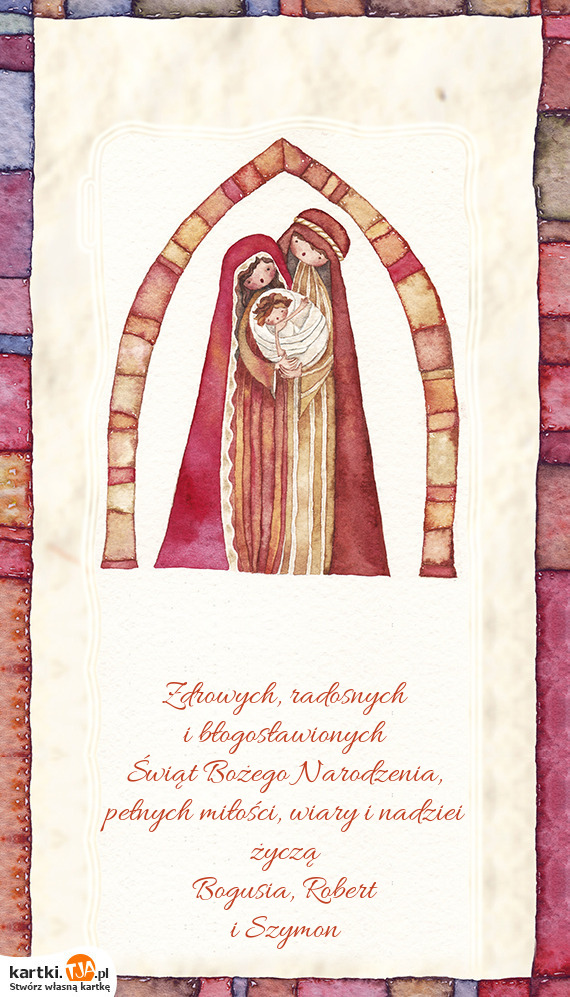 Zdrowych, radosnych
i błogosławionych
Świąt Bożego Narodzenia,
pełnych miłości, wiary i nadziei
życzą
Bogusia, Robert
i Szymon
kartki.TJA.pl
Stwórz własną kartkę